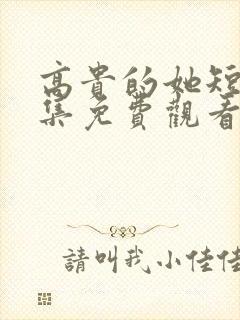 高貴的她短
集免費觀看
請叫我小佳佳